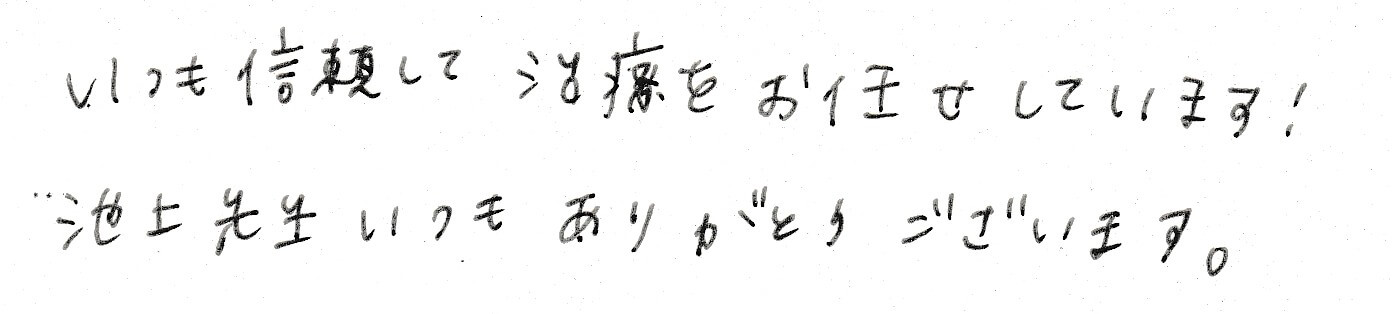 いつも信頼して治療をお任せしています!
池上先生いつもありがとうございます。